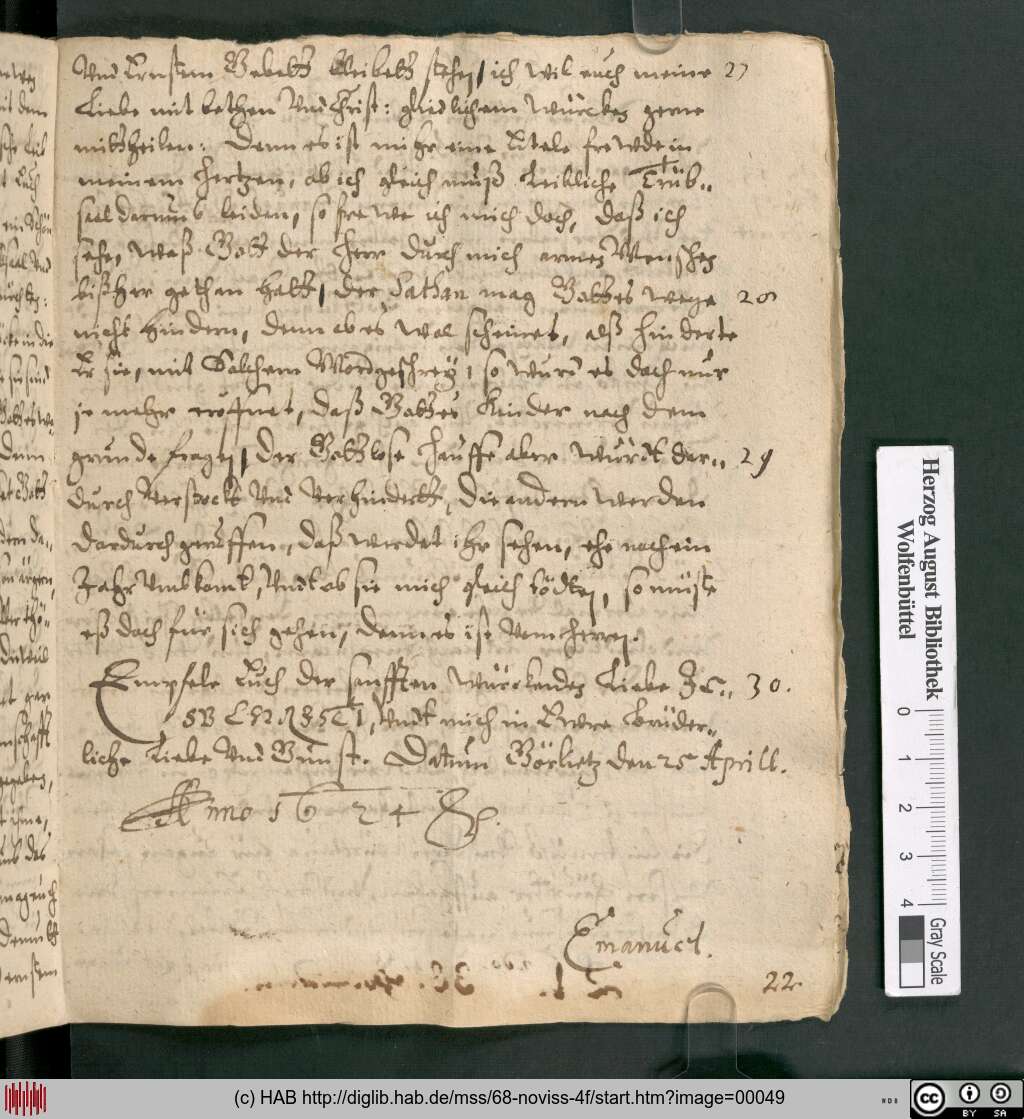 Vnd Ernstem Gebett bleibett stehen, ich wil euch meine 27
Liebe mit bethen Vnd Christ: gliedlichem würcken gerne
mittheilen: Denn es ist mihr eine Eitele frewde in
meinem hertzen, ob ich gleich muß leibliche Trüb„
saal darumb leiden, so frewe ich mich doch, daß ich
sehe, waß Gott der Herr durch mich armen Menschen
bißher gethan hatt, der Sathan mag Gottes wege 28
nicht hindern, denn ob es wol scheinet, alß hinderte
Er sie, mit Solchem Mordgeschrey, so wurd es doch nur
je mehr eröffnet, daß Gottes Kinder nach dem
grunde fragen, Der Gottlose hauffe aber würdt dar„ 29
durch Verstockt Vnd Verhindertt, Die andern werden
dardurch geruffen, daß werdet ihr sehen, ehe noch ein
Jahr Vmb komt, Vndt ob sie mich gleich tödten, so müste
eß doch für sich gehen, denn es ist Vom Herren.
Empfele Euch der sanfften würckenden Liebe JE„ 30.
SV CHRISTI, Vndt mich in Ewre brüder„
liche Liebe Vnd Gunst. Datum Görlietz den 25 Aprill.
Anno 1624
Emanuel.
22
Herzog August Bibliothek
Wolfenbüttel
0 1 2 3 4
Gray Scale
(c) HAB http://diglib.hab.de/mss/68-noviss-4f/start.htm?image=00049
cc BY SA